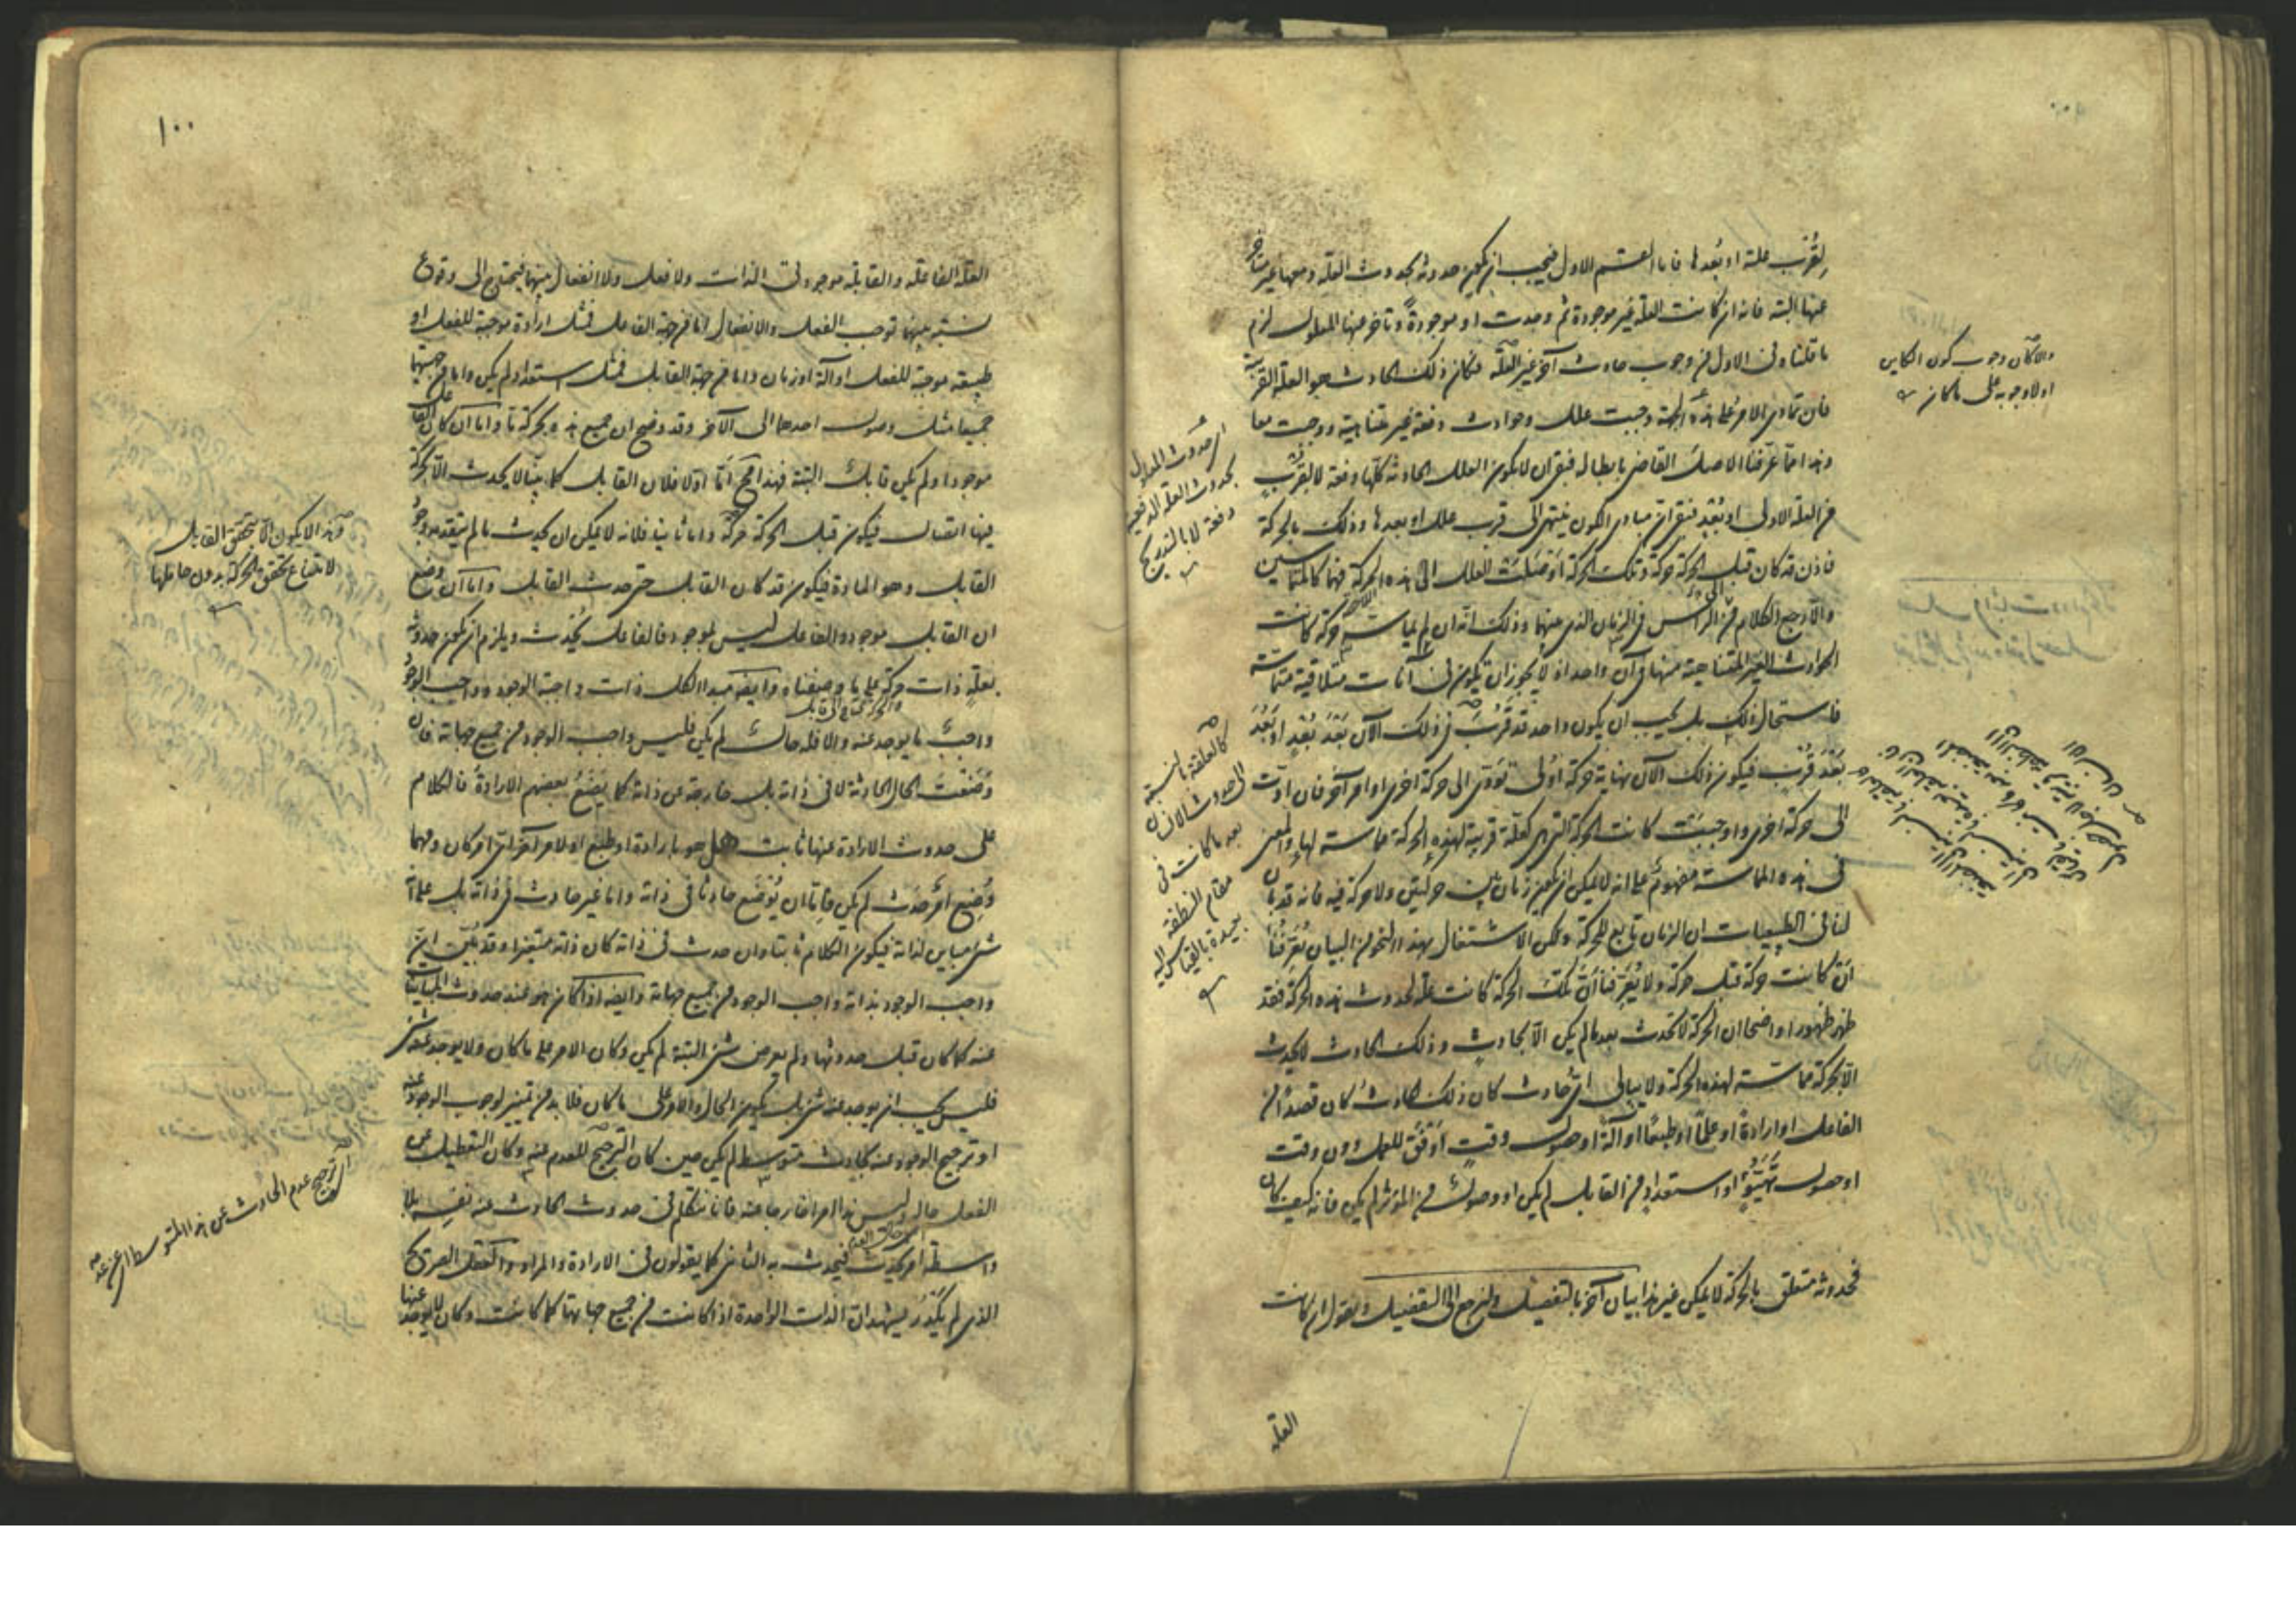 لقرب علة او بعدها فاما القسم الاول فيجب ان يكون حدوثه بحدوث العلة ومعها غير متأخر
عنها البتة فانه ان كانت العلة غير موجودة ثم وجدت او موجودة وتأخر عنها المعلول لزم
ما قلناه في الاول من وجوب حادث آخر غير العلة فكان ذلك الحادث هو العلة القريبة
فان تمادى الامر على هذه الجهة وجبت علل وحوادث دفعة غير متناهية ووجبت معا
وهذا مما عرفنا الاصل القاضي بابطاله فبقي ان لا يكون العلل الحادثة كلها دفعة لا لقرب
من العلة الاولى او بعد فبقي ان مبادى الكون ينتهي الى قرب علل او بعدها وذلك بالحركة
فاذن قد كان قبل الحركة حركة وتلك الحركة اوصلت العلل الى هذه الحركة فهما كالمتماسين
والا رجع الكلام الى الرأس في الزمان الذي بينهما وذلك انه ان لم يماسه حركة كانت
الحوادث الغير المتناهية منها في آن واحد اذ لا يجوز ان تكون في آنات متلاقية متماسة
فاستحال ذلك بل يجب ان يكون واحد قد قرب في ذلك الآن بعد بعد او بعد
بعد قرب فيكون ذلك الآن نهاية حركة اولى تؤدى الى حركة اخرى او امر آخر فان ادت
الى حركة اخرى واوجبت كانت الحركة التي هي كعلة قريبة لهذه الحركة مماسة لها والمعنى
في هذه المماسة مفهوم على انه لا يمكن ان يكون زمان بين حركتين ولا حركة فيه فانه قد بان
لنا في الطبيعيات ان الزمان تابع للحركة ولكن الاشتغال بهذا النحو من البيان يعرفنا
ان كانت حركة قبل حركة ولا يعرفنا ان تلك الحركة كانت علة لحدوث هذه الحركة فقد
ظهر ظهورا واضحا ان الحركة لا تحدث بعد ما لم يكن الا بحادث وذلك الحادث لا يحدث
الا بحركة مماسة لهذه الحركة ولا يبالى اي حادث كان ذلك الحادث كان قصدا من
الفاعل او ارادة او علما او طبعا او آلة او حصول وقت اوفق للعمل دون وقت
او حصول تهيؤ او استعداد من القابل لم يكن او وصولا من المؤثر لم يكن فانه كيف كان
فحدوثه متعلق بالحركة لا يمكن غير هذا بيان آخر بالتفصيل ولنرجع الى التفصيل ونقول ان كانت
العلة
والا كان وجوب كون الكاين
اولا وجوبه على ما كان
اى حدوث المعلول
بحدوث العلة الدفعية
دفعة لا بالتدريج
كالعلقة بالنسبة
الى حدوث الانسان
بعد ما كانت في
مقام النطفة
بعيدة بالقياس اليه
١٠٠
العلة الفاعلة والقابلة موجودتي الذات ولا فعل ولا انفعال بينهما فيحتاج الى وقوع
نسبة بينهما توجب الفعل والانفعال اما من جهة الفاعل فمثل ارادة موجبة للفعل او
طبيعة موجبة للفعل او آلة او زمان واما من جهة القابل فمثل استعداد لم يكن واما من جهتيهما
جميعا مثل وصول احدهما الى الآخر وقد وضح ان جميع هذه بحركة ما واما ان كان الفاعل
موجودا ولم يكن قابل البتة فهذا مح اما اولا فلان القابل كما بينا لا يحدث الا بحركة
فيكون قبل الحركة حركة واما ثانيا فلانه لا يمكن ان يحدث ما لم يتقدمه وجود
القابل وهو المادة فيكون قد كان القابل حتى حدث القابل واما ان وضع
ان القابل موجود والفاعل ليس بموجود فالفاعل يحدث ويلزم ان يكون حدوثه
بعلة ذات حركة على ما وصفناه وايضا مبدا الكل ذات واجبة الوجود وواجب الوجود
واجب ما يوجد عنه والا فله حال لم يكن فليس واجب الوجود من جميع جهاته فان
وضعت الحال الحادثة لا في ذاته بل خارجة عن ذاته كما يضع بعضهم الارادة فالكلام
على حدوث الارادة عنها ثابت هل هو بارادة او طبع او لامر آخر اي امر كان ومهما
وضع امر حدث لم يكن فاما ان يوضع حادثا في ذاته واما غير حادث في ذاته بل على انه
شيء مباين لذاته فيكون الكلام ثابتا وان حدث في ذاته كان ذاته متغيرا وقد بين ان
واجب الوجود بذاته واجب الوجود من جميع جهاته وايضا اذا كان هو عند حدوث المباينات
عنه كما كان قبل حدوثها ولم يعرض شيء البتة لم يكن وكان الامر على ما كان ولا يوجد عنه شيء
فليس يجب ان يوجد عنه شيء بل يكون الحال والامر على ما كان فلا بد من تميز لوجوب الوجود عنه
او ترجيح الوجود عنه بحادث متوسط لم يكن حين كان الترجيح للعدم عنه وكان التعطيل عن
الفعل حاله وليس هذا امرا خارجا عنه فانا نتكلم في حدوث الحادث عنه نفسه بلا
واسطة امر يحدث فيحدث به الثاني كما يقولون في الارادة والمراد والعقل الصريح
الذي لم يكدر يشهد ان الذات الواحدة اذا كانت من جميع جهاتها كما كانت وكان لا يوجد عنها
وهذا لا يكون الا بتحقق القابل
لامتناع تحقق الحركة بدون حاملها
اى ترجيح عدم الحادث عن هذا المتوسط